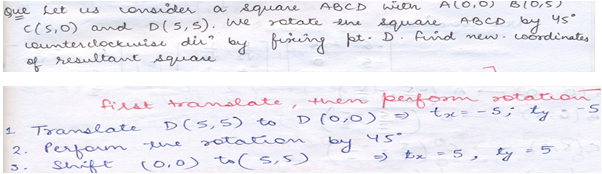 Que Let us consider a square ABCD with A(0,0) B(0,5)
C(5,0) and D(5,5). We rotate the square ABCD by 45°
counterclockwise dirⁿ by fixing pt. D. Find new coordinates
of resultant square
first translate, then perform rotation
1. Translate D(5,5) to D(0,0) ⇒ tx = -5; ty = -5
2. Perform the rotation by 45°
3. Shift (0,0) to (5,5) ⇒ tx = 5, ty = 5